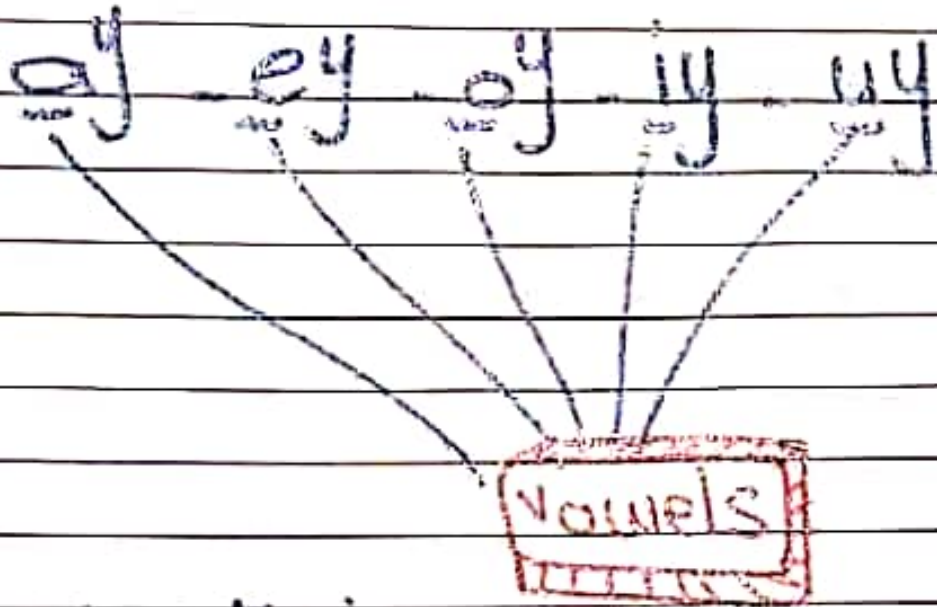 ay - ey - oy - iy - uy
Vowels